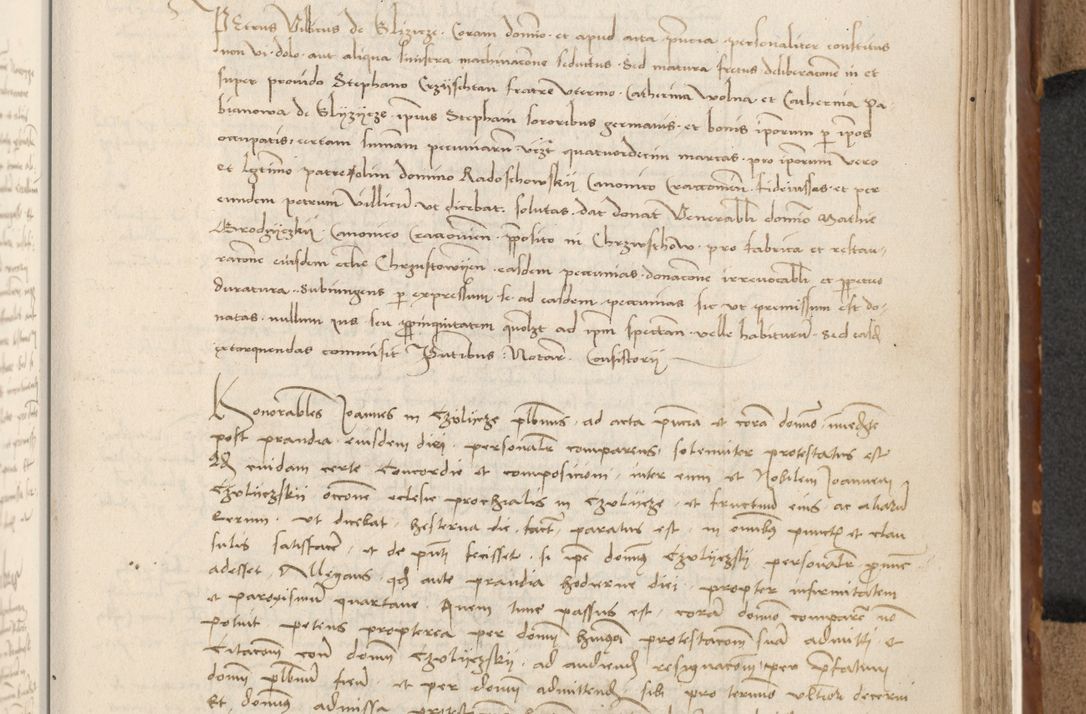 Petrus Villicus de Slizicze Coram domino et apud acta pñcia personaliter constitutus
non vi dolo aut aliqua sinistra machinacõne seductus Sed matura fretus deliberacõne in et
super provido Stephano Crzyschtan fratre uterino Catherina Wolna et Catherina Pa
bianowa de Slyzycze ipsius Stephani sororibus germanis et bonis ipsorum per ipsos
occupatis certam summam pecuniarum vizt quatuordecim marcas pro ipsorum vero
et legitimo patre olim domino Radoschowskij Canonico Cracovien fideiussas et per
eundem petrum Villicum ut dicebat solutas dat donat Venerabili domino Mathie
Grodzyczkij Canonico Cracovien pposito in Chrzusschow pro fabrica et restau
racõne eiusdem ecclie Chrzustowijen easdem pecunias donacõne irrevocabili et perpetuo
duratura Subiungens per expressum se ad easdem pecunias sic ut premissum est do
natas nullum ius seu propinquitatem quolzt ad ipm spectan velle habiturum Sed easdem
extorquendas commisit Patribus Notar Consistorij
Honorabiles Joannes in Czulycze plbnus ad acta pñcia et cora domino
post prandia eiusdem diei personaliter comparens solenniter protestatus est
Qd cuidam certe Concordie et composicioni inter eum et Nobilem Joannem
Czulyczskij occone eclesie prochialis in Czulycze et fructuum eius ac aliarum
rerum ut dicebat hesterna die fact paratus est in omnibus punctis et clau
sulis satisfacere et de pnti fecisset si ipse domnus Czulyczskij personaliter
adesset Allegans qd ante prandia hodierne diei propter infirmitatem
et paroxismum quartane Quem tunc passus est coram domino comparere no
potuit petens propterea per domin huiusmodi protestacom sua admitti et
Citacom contra domin Czulyczskij ad audiend resignacom per prefatum
domin plbnum fieri et per domin admittend sibi pro termino ulteriori decerni
Et domnus admissa